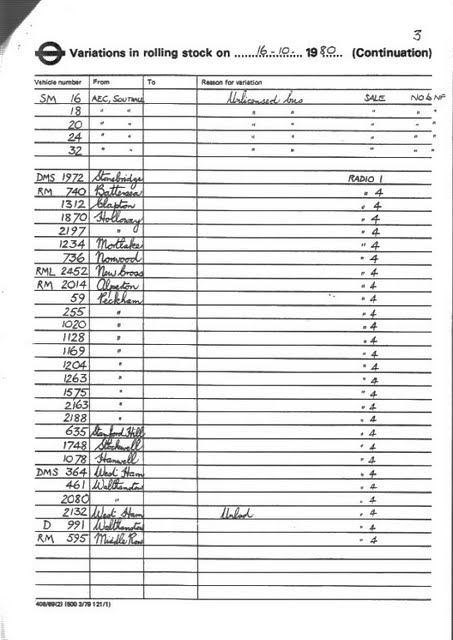 3
Variations in rolling stock on 16-10- 1980 (Continuation)
Vehicle number From To Reason for variation
SM 16 AEC, SOUTHALL Unlicensed bus SALE NO 6 NF
18 " " " " " " "
20 " " " " " " "
24 " " " " " " "
32 " " " " " " "
DMS 1972 Stonebridge RADIO 1
RM 740 Battersea " 4
1312 Clapton " 4
1870 Holloway " 4
2197 " " 4
1234 Mortlake " 4
736 Norwood " 4
RML 2452 New Cross " 4
RM 2014 Alperton " 4
59 Peckham " 4
255 " " 4
1020 " " 4
1128 " " 4
1169 " " 4
1204 " " 4
1263 " " 4
1575 " " 4
2163 " " 4
2188 " " 4
635 Stamford Hill " 4
1748 Stockwell " 4
1078 Hanwell " 4
DMS 364 West Ham " 4
461 Walthamstow " 4
2080 " " 4
2132 West Ham " 4
D 991 Walthamstow " 4
RM 595 Middle Row " 4
408/69(2) (500 3/79 121/1)